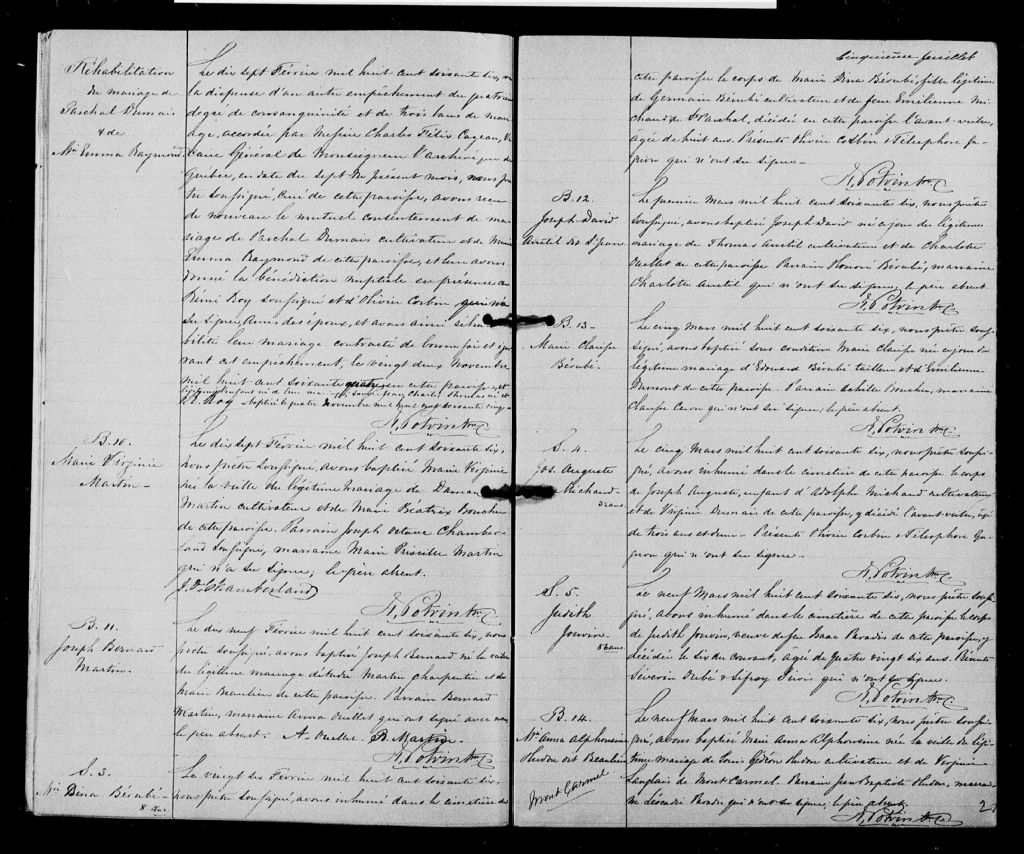 Réhabilitation
du mariage de
Paschal Dumais
& de
Mie Emma Raymond
Le dix sept Février mil huit cent soixante six, vu
la dispense d'un autre empêchement du quatrième
degré de consanguinité et de trois bans de mari-
age, accordée par Messire Charles Félix Cazeau, Vi-
caire Général de Monseigneur l'archevêque de
Québec, en date du sept du présent mois, nous prê-
tre soussigné, curé de cette paroisse, avons reçu
de nouveau le mutuel consentement de ma-
riage de Paschal Dumais cultivateur et de Marie
Emma Raymond de cette paroisse, et leur avons
donné la bénédiction nuptiale en présence de
Rémi Roy soussigné et d'Olivier Corbin qui n'a
su signer, amis des époux, et avons ainsi réha-
bilité leur mariage contracté de bonne foi et igno-
rant cet empêchement, le vingt deux Novembre
mil huit cent soixante quatre en cette paroisse, et
Jean Charles
baptisé le quatre Novembre mil huit cent soixante cinq.
R. Roy
N. Potvin Ptre C.
B. 10.
Marie Virginie
Martin
Le dix sept Février mil huit cent soixante six,
nous prêtre soussigné, avons baptisé Marie Virginie
née la veille du légitime mariage de Damase
Martin cultivateur et de Marie Béatrix Boucher
de cette paroisse. Parrain Joseph Octave Chamber-
land soussigné, marraine Marie Priscille Martin
qui n'a su signer; le père absent.
J. O. Chamberland
N. Potvin Ptre C.
B. 11.
Joseph Bernard
Martin.
Le dix neuf Février mil huit cent soixante six, nous
prêtre soussigné, avons baptisé Joseph Bernard né la veille
du légitime mariage d'André Martin charpentier et de
Marie Beaulieu de cette paroisse. Parrain Bernard
Martin, marraine Anna Ouellet qui ont signé avec nous,
le père absent. A. Ouellet. B. Martin.
N. Potvin Ptre C.
S. 3.
Mie Dina Bérubé
8 ans
Le vingt six Février mil huit cent soixante six,
nous prêtre soussigné, avons inhumé dans le cimetière de
Cinquième feuillet
cette paroisse le corps de Marie Dina Bérubé, fille légitime
de Germain Bérubé cultivateur et de feue Emilienne Mi-
chaud de St Paschal, décédée en cette paroisse l'avant-veille,
âgée de huit ans. Présents Olivier Corbin & Télesphore Ga-
gnon qui n'ont su signer.
N. Potvin Ptre C.
B. 12.
Joseph David
Anctil dit St Jean
Le premier Mars mil huit cent soixante six, nous prêtre
soussigné, avons baptisé Joseph David né ce jour du légitime
mariage de Thomas Anctil cultivateur et de Charlotte
Ouellet de cette paroisse. Parrain Honoré Bérubé, marraine
Charlotte Anctil qui n'ont su signer; le père absent.
N. Potvin Ptre C.
B. 13
Marie Clarisse
Bérubé.
Le cinq Mars mil huit cent soixante six, nous prêtre sous-
signé, avons baptisé sous condition Marie Clarisse née ce jour du
légitime mariage d'Edouard Bérubé tailleur et d'Emilienne
Dumont de cette paroisse. Parrain Boucher, marraine
Clarisse Caron qui n'ont su signer; le père absent.
N. Potvin Ptre C.
S. 4.
Jos. Auguste
Michaud
3 ans.
Le cinq Mars mil huit cent soixante six, nous prêtre soussi-
gné, avons inhumé dans le cimetière de cette paroisse le corps
de Joseph Auguste, enfant d'Adolphe Michaud cultivateur
et de Virginie Dumais de cette paroisse, y décédé l'avant veille, âgé
de trois ans et demi. Présents Olivier Corbin & Télesphore Ga-
gnon qui n'ont su signer.
N. Potvin Ptre C.
S. 5.
Judith
Jouvin.
86 ans.
Le neuf Mars mil huit cent soixante six, nous prêtre soussi-
gné, avons inhumé dans le cimetière de cette paroisse le corps
de Judith Jouvin, veuve de feu Isaac Paradis de cette paroisse, y
décédée le six du courant, âgée de quatre vingt six ans. Présents
Séverin Dubé & Sifroy Sirois qui n'ont su signer.
N. Potvin Ptre C.
B. 14.
Mie Anna Alphonsine
Hudon dit Beaulieu
Mont Carmel
Le neuf Mars mil huit cent soixante six, nous prêtre soussi-
gné, avons baptisé Marie Anna Alphonsine née la veille du légi-
time mariage de Louis Gédéon Hudon cultivateur et de Virginie
Langlais de Mont Carmel. Parrain Jean Baptiste Hudon, marrai-
ne Léocadie Paradis qui n'ont su signer; le père absent.
N. Potvin Ptre C.
2